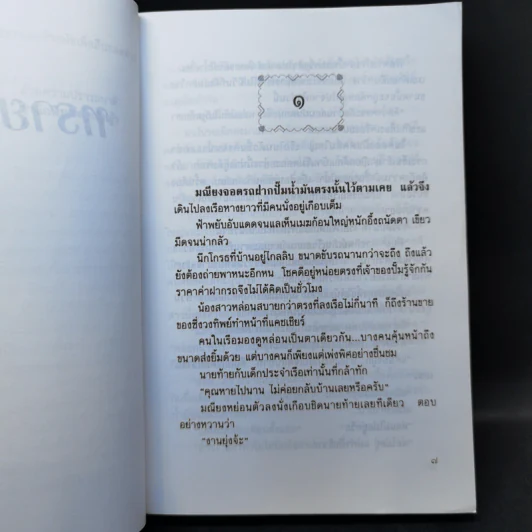 ๑
มณียงจอดรถฝากปั๊มน้ำมันตรงนั้นไว้ตามเคย แล้วจึง
เดินไปลงเรือหางยาวที่มีคนนั่งอยู่เกือบเต็ม
ฟ้าพยับอับแดดจนแลเห็นเมฆก้อนใหญ่หนักอึ้งถนัดตา เขียว
มืดจนน่ากลัว
นึกโกรธที่บ้านอยู่ไกลลิบ ขนาดขับรถนานกว่าจะถึง ถึงแล้ว
ยังต้องถ่ายพาหนะอีกหน โชคดีอยู่หน่อยตรงที่เจ้าของปั๊มรู้จักกัน
ราคาค่าฝากรถจึงไม่ได้คิดเป็นชั่วโมง
น้องสาวหล่อนสบายกว่าตรงที่ลงเรือไม่กี่นาที ก็ถึงร้านขาย
ของซึ่งวงทิพย์ทำหน้าที่แคชเชียร์
คนในเรือมองดูหล่อนเป็นตาเดียวกัน...บางคนคุ้นหน้าถึง
ขนาดส่งยิ้มด้วย แต่บางคนก็เพียงแต่เพ่งพิศอย่างชื่นชม
นายท้ายกับเด็กประจำเรือเท่านั้นที่กล้าทัก
"คุณหายไปนาน ไม่ค่อยกลับบ้านเลยหรือครับ"
มณียงหย่อนตัวลงนั่งเกือบชิดนายท้ายเลยทีเดียว ตอบ
อย่างหวานว่า
"งานยุ่งจ้ะ"
๗